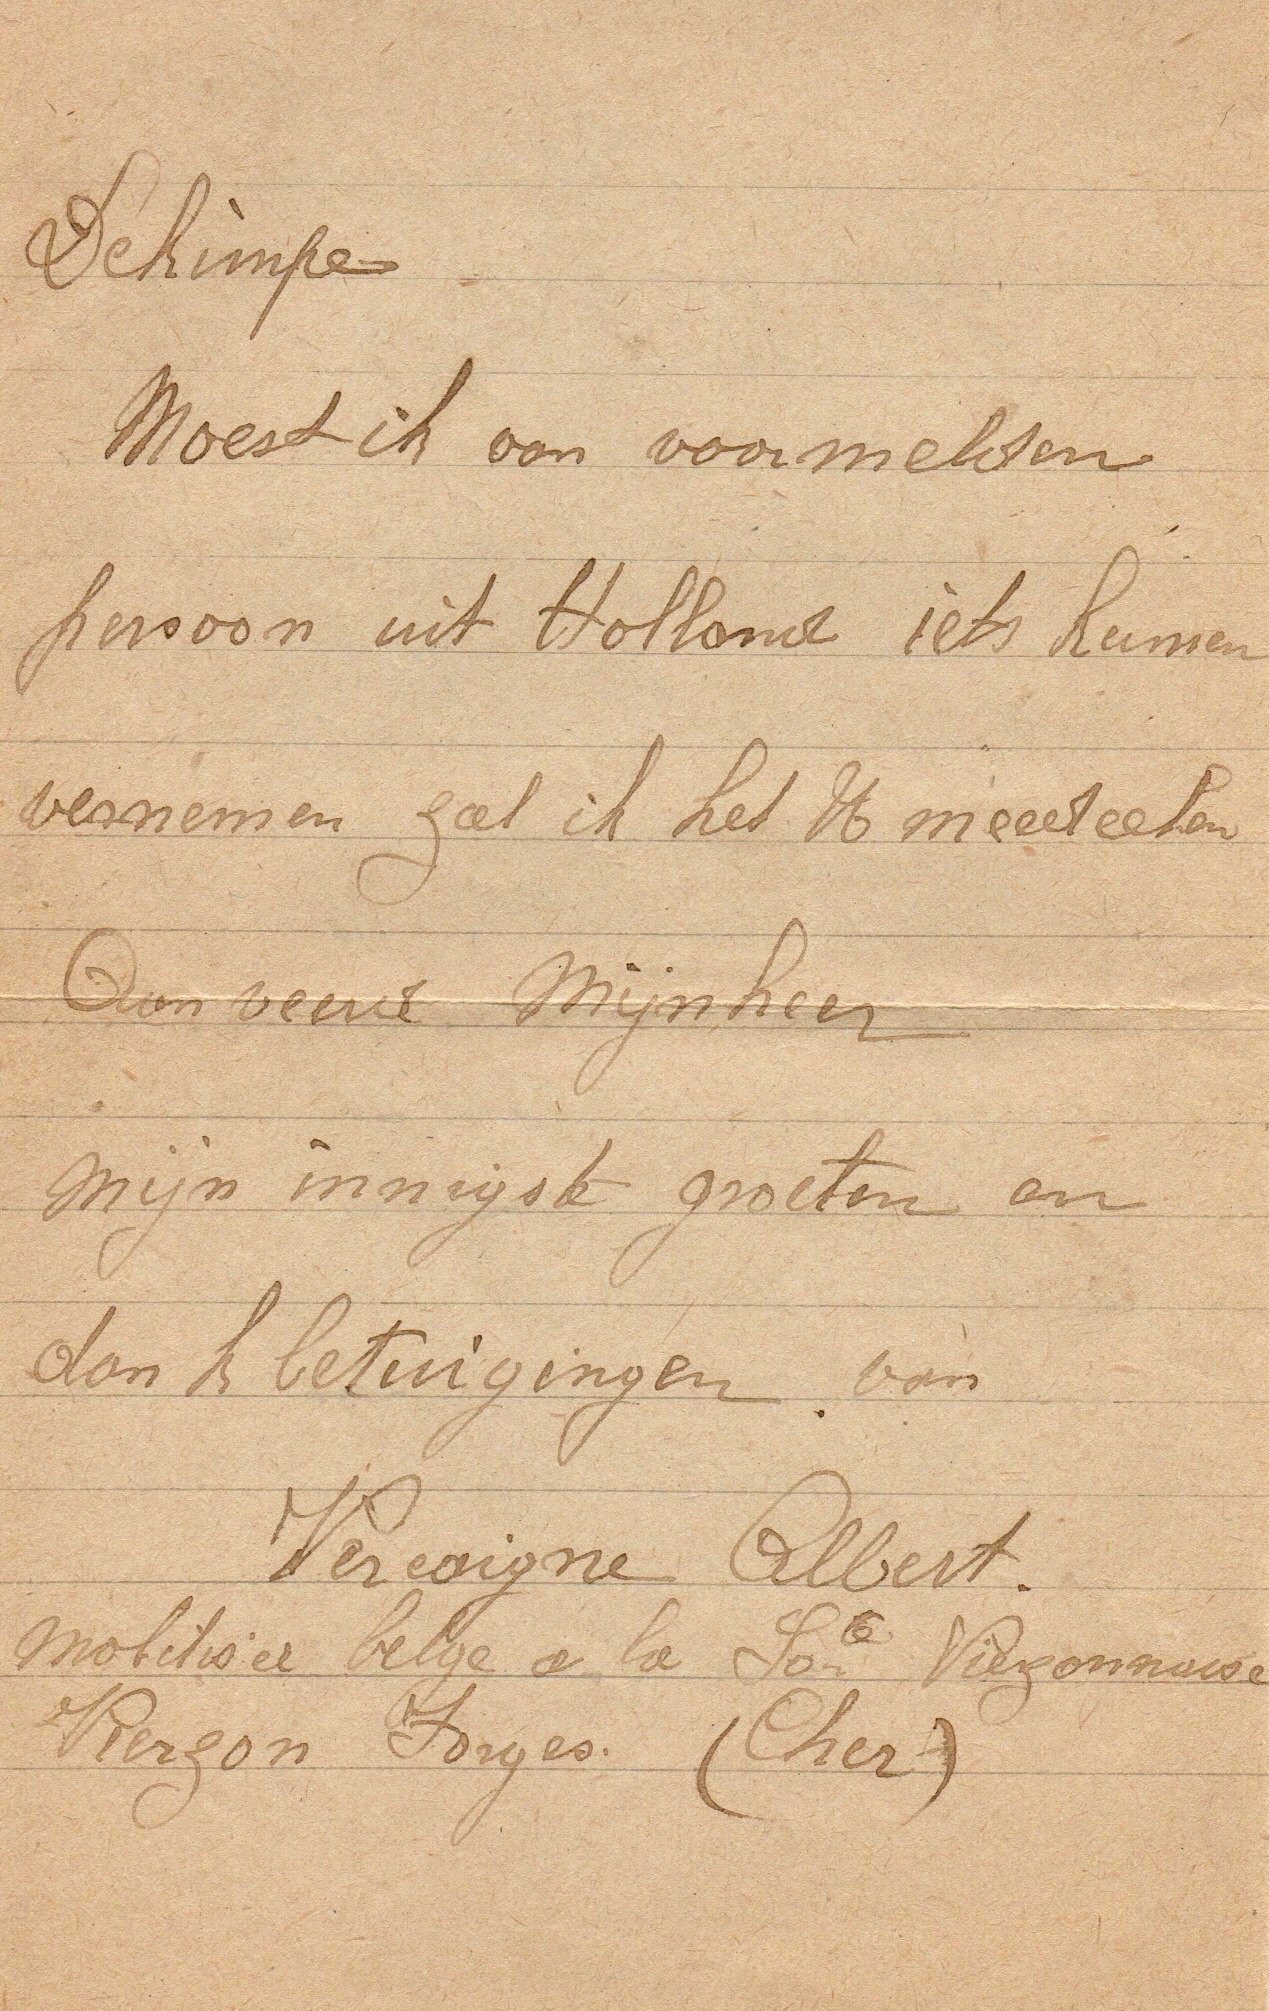 Dekimpe
Moest ik van voormelden
persoon uit Holland iets kunnen
vernemen zal ik het U meedeelen
Aanveerd Mijnheer
mijn innigste groeten en
dankbetuigingen van
Vercaigne Albert.
Mobiliser belge a la Soc Vierzonnaise
Vierzon Forges. (Cher)